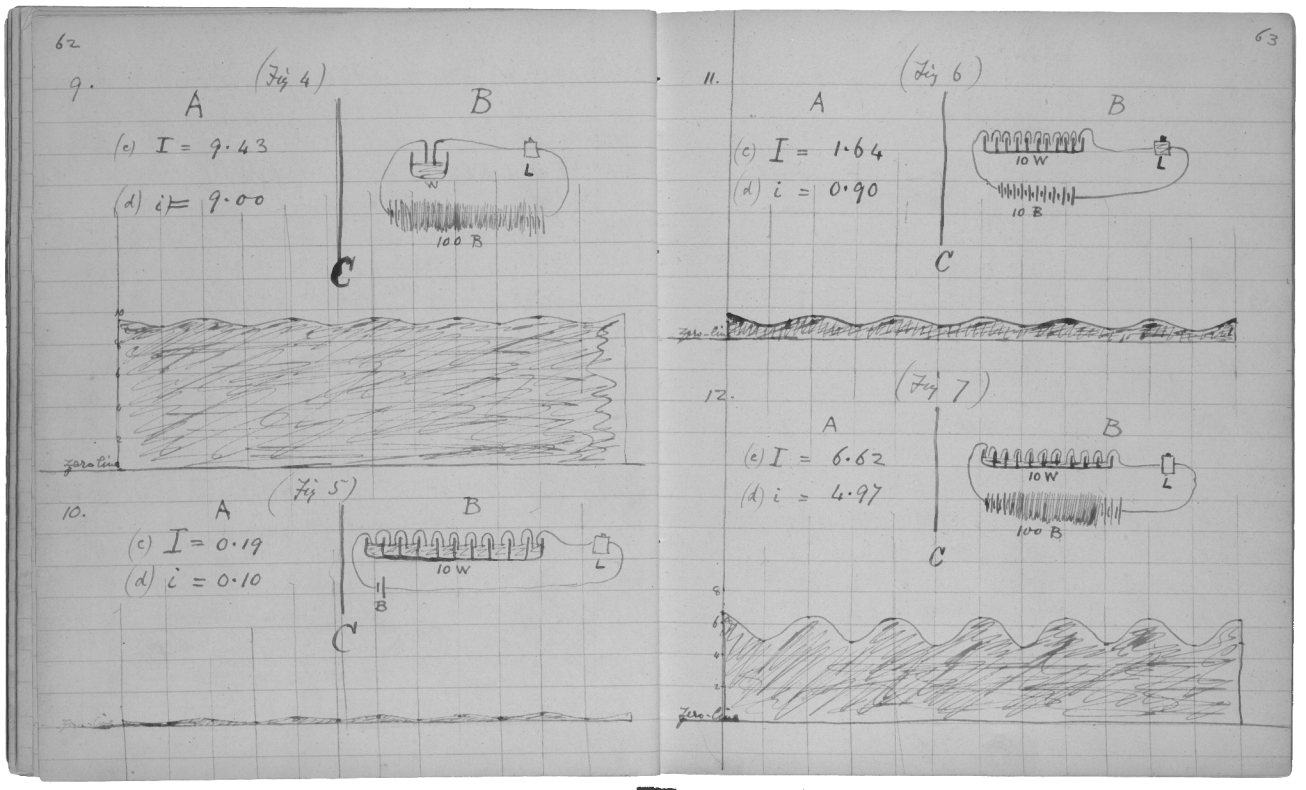 62
9.
(Fig 4)
A
B
(c) I = 9.43
(d) i = 9.00
W
L
100 B
C
10
8
6
4
2
zero line
10.
(Fig 5)
A
B
(c) I = 0.19
(d) i = 0.10
10 W
L
B
C
63
11.
(Fig 6)
A
B
(c) I = 1.64
(d) i = 0.90
10 W
L
10 B
C
zero-line
12.
(Fig 7)
A
B
(c) I = 6.62
(d) i = 4.97
10 W
L
100 B
C
8
6
4
2
zero-line